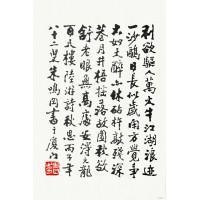 利欲驅人萬火牛江湖浪迹
一沙鷗日長似歲閑方覺事
大如天醉亦休砧杵敲殘深
巷月井梧搖落故園秋欲
舒老眼無高處安得元龍
百尺樓陸游詩秋思丙子年
八十三叟朱鳴岡書于廈門